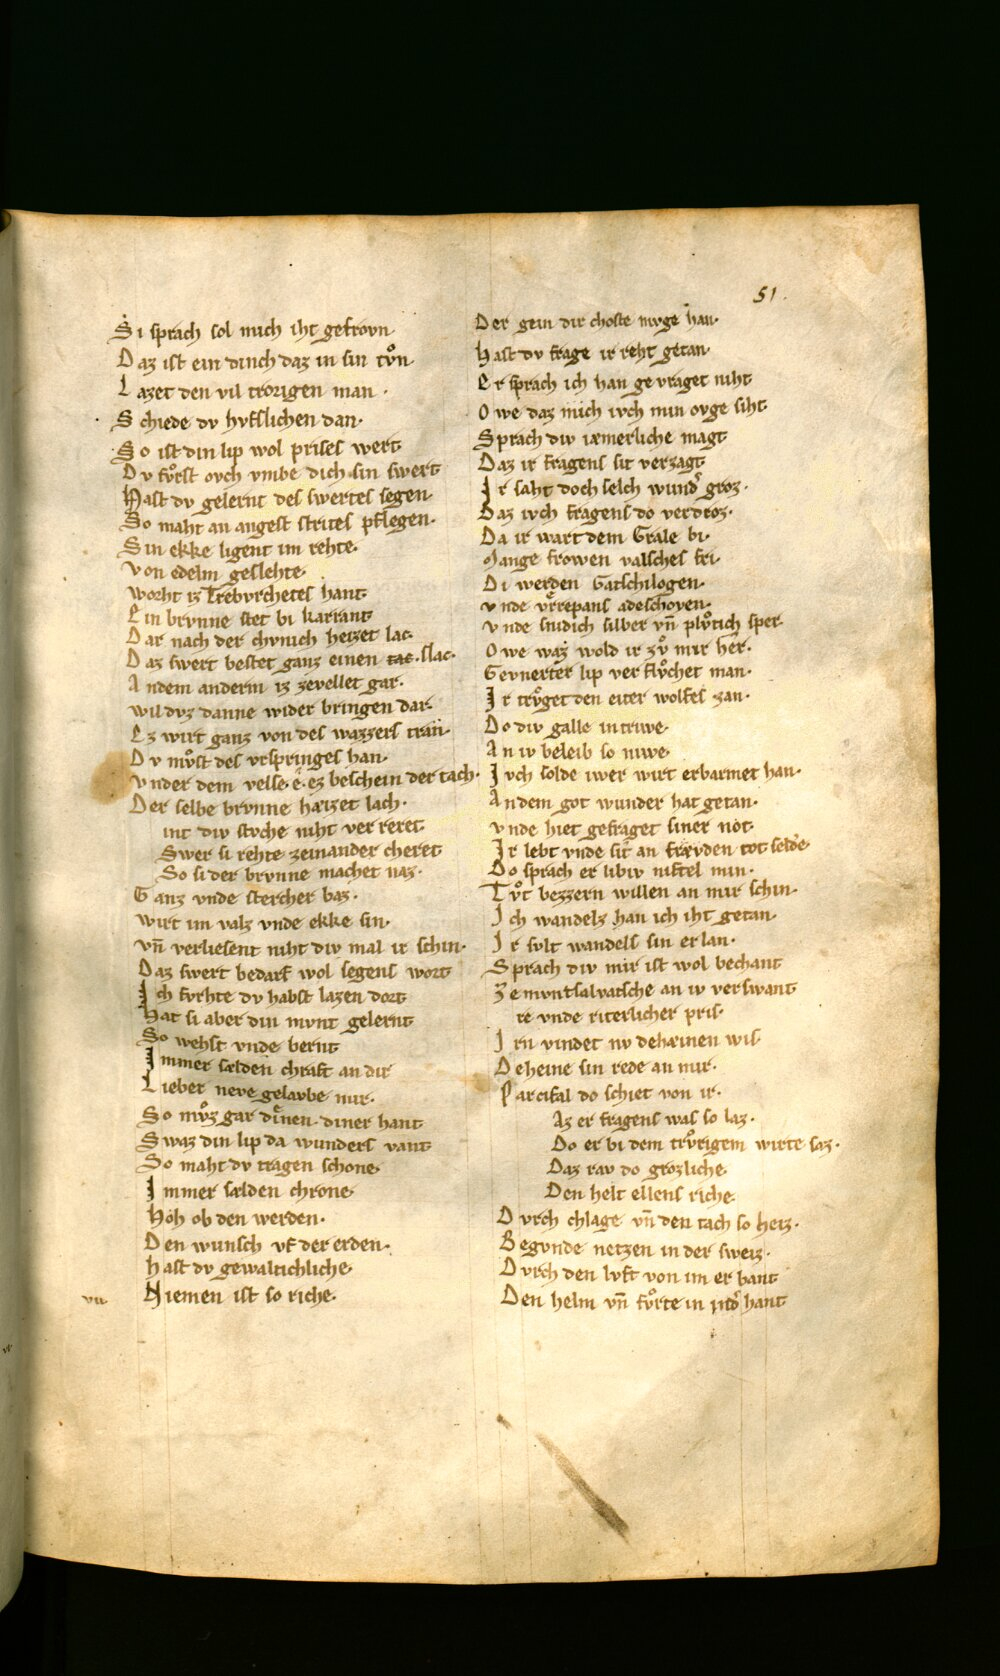 51.
Si sprach sol mich iht gefrovn
Daz ist ein dinch daz in sin tvͦn
Lazet den vil trorigen man.
Schiede dv hvflichen dan.
So ist din lip wol prises wert
Dv fvͦrst ovch vmbe dich sin swert
Hast dv gelernt des swertes segen.
So maht an angest strites pflegen.
Sin ekke ligent im rehte.
Von edelm geslehte.
Worht iz Trebvrchetes hant
Ein brvnne stet bi karrant
Dar nach der chvnich heizet lac.
Daz swert bestet ganz einen slac.
Andem anderm iz zevellet gar.
Wil dvz danne wider bringen dar.
Ez wirt ganz von des wazzers tran.
Dv mvͦst des vrspringes han.
Vnder dem velse. e. ez beschein der tach.
Der selbe brvnne hæizet lach.
int div stvche niht ver reret
Swer si rehte zeinander cheret
So si der brvnne machet naz.
Ganz vnde stercher baz.
Wirt im valz vnde ekke sin.
Vn̄ verliesent niht div mal ir schin.
Daz swert bedarf wol segens wort
Ich fvrhte dv habst lazen dort
Hat si aber din mvnt gelernt
So wehst vnde bernt
Immer sælden chraft an dir
Lieber neve gelavbe mir.
So mvͦz gar dīnen diner hant
Swaz din lip da wunders vant
So maht dv tragen schone
Immer sælden chrone
Hoh ob den werden.
Den wunsch vf der erden.
Hast dv gewaltichliche
Niemen ist so riche.
vii
Der gein dir choste mvge han.
Hast dv frage ir reht getan.
Er sprach ich han ge vraget niht
Owe daz mich ivch min ovge siht.
Sprach div iæmerliche magt
Daz ir fragens sit verzagt
Ir saht doch selch wundͤ groz.
Daz ivch fragens do verdroz.
Da ir wart dem Grale bi.
Mange frowen valsches fri.
Di werden Gatschilogen.
Vnde vͤrrepans adeschoyen.
Vnde snidich silber vn̄ plvͦtich sper.
Owe waz wold ir zvͦ mir her.
Gevnerter lip ver flvͦchet man.
Ir trvͦget den eiter wolfes zan.
Do div galle in triwe.
An iv beleib so niwe.
Ivch solde iwer wirt erbarmet han.
Andem got wunder hat getan.
Vnde hiet gefraget siner not.
Ir lebt vnde sit an frævden tot
Do sprach er libiv niftel min.
Tvͦt bezzern willen an mir schin.
Ich wandelz han ich iht getan.
Ir svlt wandels sin erlan.
Sprach div mir ist wol bechant
Zemvntsalvatsche an iv verswant
re vnde riterlicher pris.
Irn vindet nv dehæinen wis
Deheine sin rede an mir.
Parcifal do schiet von ir.
Az er fragens was so laz.
Do er bi dem trvͦrigem wirte saz.
Daz rav do grozliche
Den helt ellens riche.
Dvrch chlage vn̄ den tach so heiz.
Begvnde netzen in der sweiz.
Dvrch den lvft von im er bant
Den helm vn̄ fvͦrte in hant